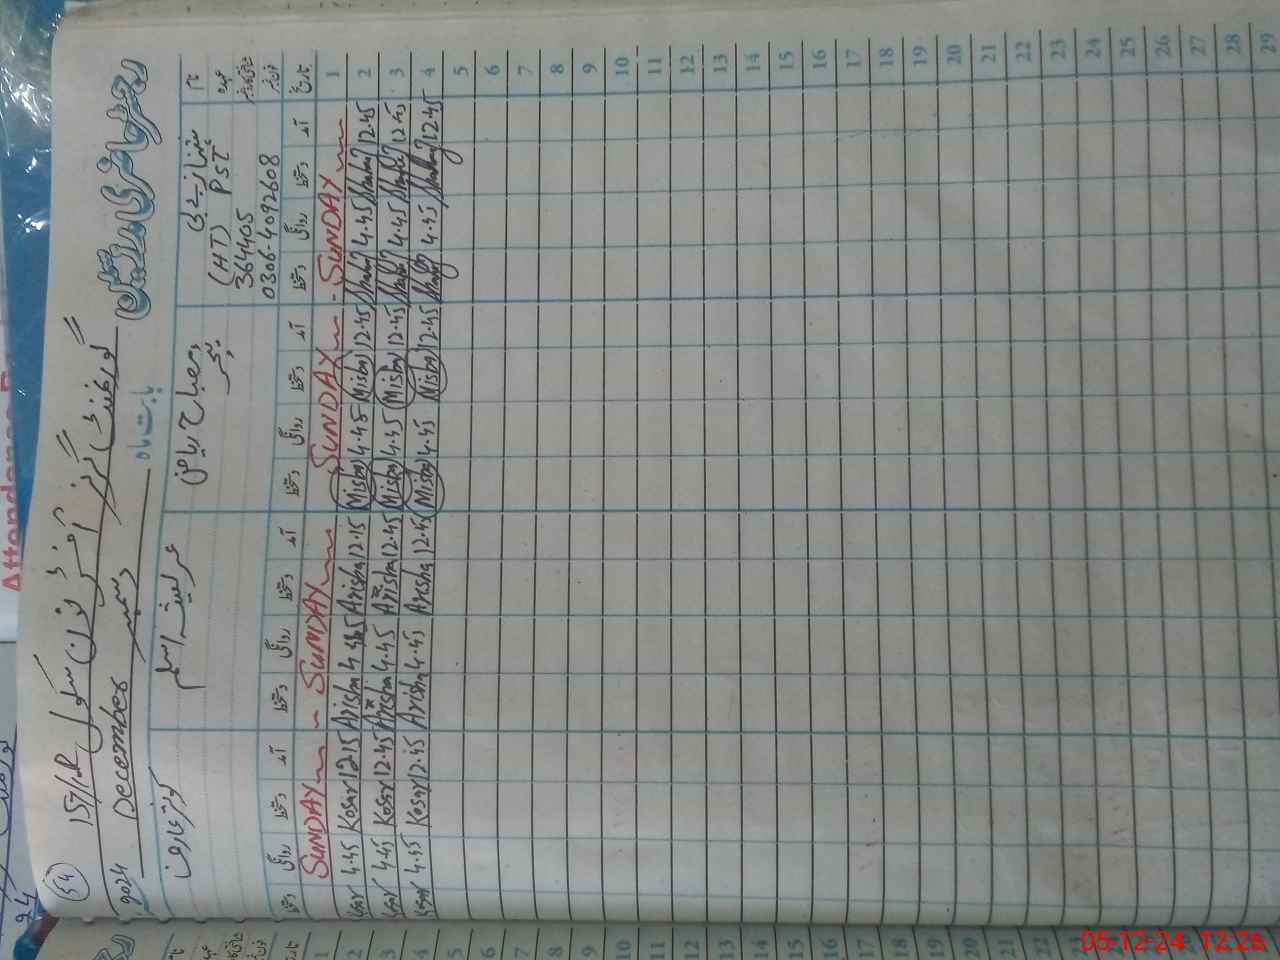 54
رجسٹر حاضری مدرسین
گورنمنٹ گرلز سکول 157/
بابت ماہ دسمبر December 2024
نام
شہناز بی بی
(HT) PST
364405
0306-4092608
مصباح ریاض
ٹیچر
عریشہ اسلم
کوثر عارف
تاریخ آمد دستخط روانگی دستخط آمد دستخط روانگی دستخط آمد دستخط روانگی دستخط آمد دستخط روانگی دستخط
1 SUNDAY SUNDAY SUNDAY SUNDAY
2 12.45 4.45 12.45 Misba 4.45 Misba 12.15 Arisha 4.45 Arisha 1215 Kosar 4.45 Kosar
3 12.45 4.45 12.45 Misba 4.45 Misba 12.45 Arisha 4.45 Arisha 12.45 Kosar 4.45 Kosar
4 12.45 4.45 12.45 Misba 4.45 Misba 12.45 Arisha 4.45 Arisha 12.45 Kosar 4.45 Kosar
5
6
7
8
9
10
11
12
13
14
15
16
17
18
19
20
21
22
23
24
25
26
27
28
29
05-12-24 12:26